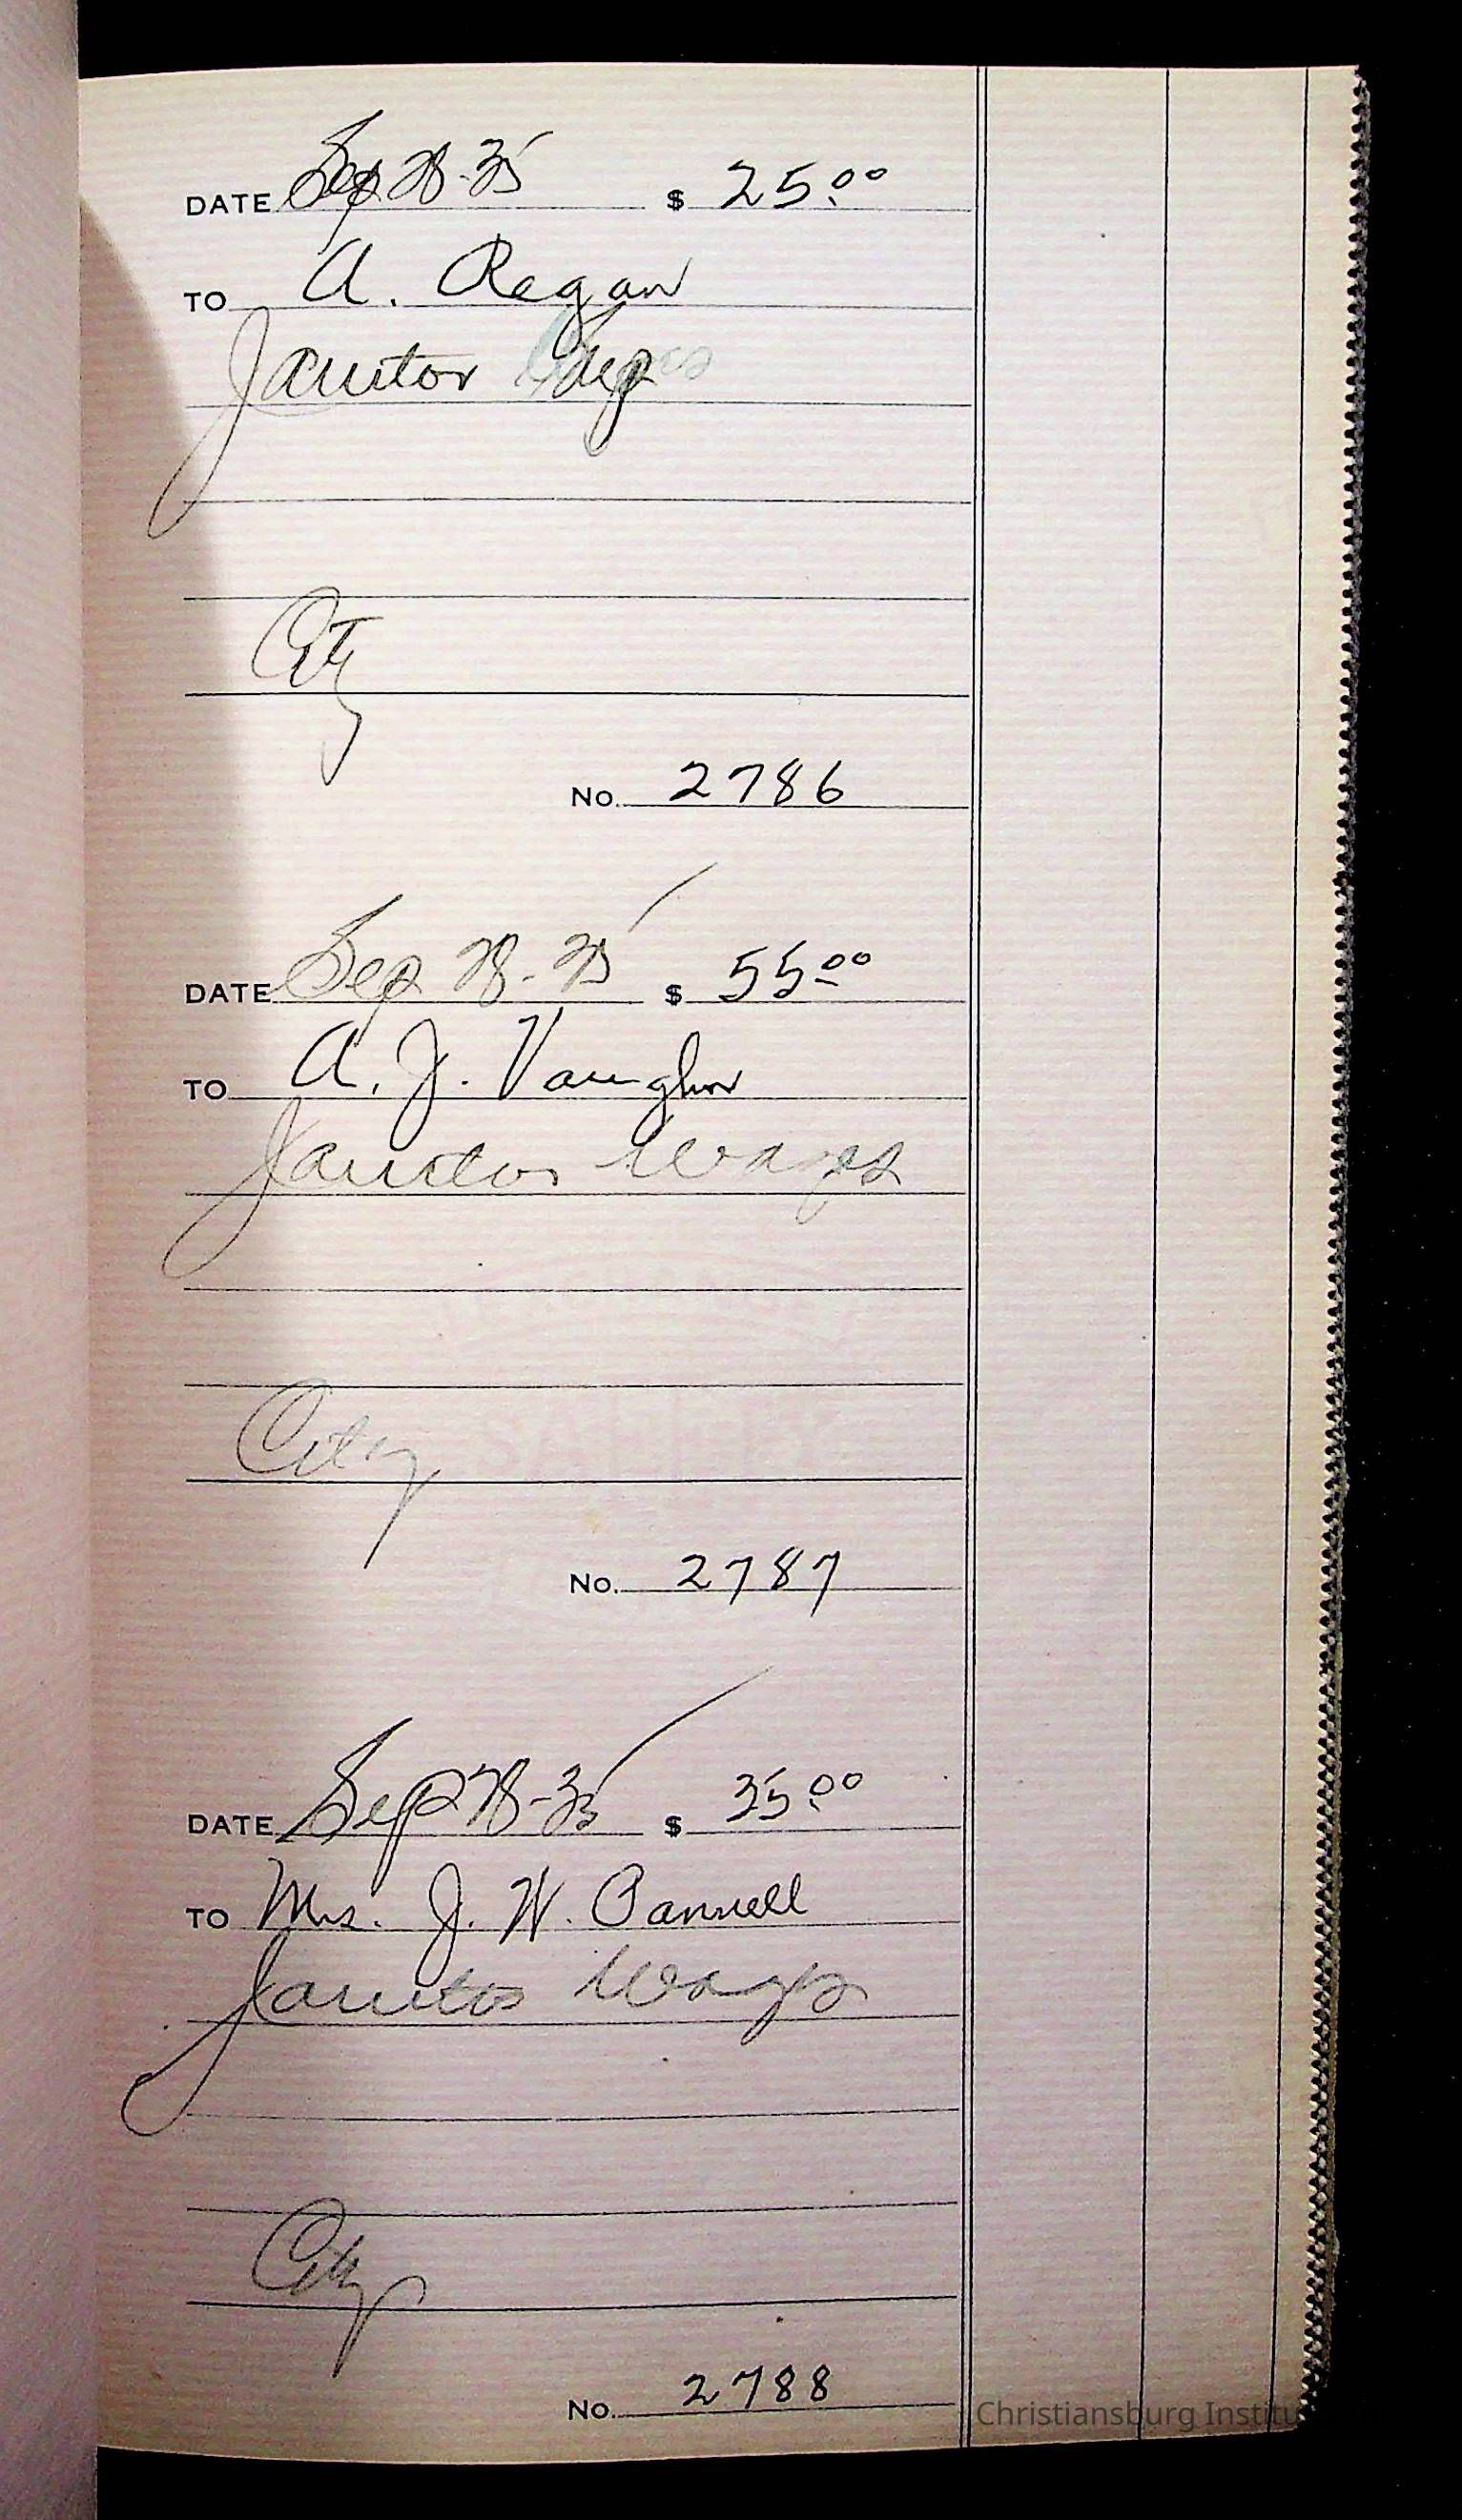 DATE Sep 28-35 $ 25.00
TO A. Regan
Janitor
City
No. 2786
DATE Sep 28-35 $ 55.00
TO A. J. Vaughn
Janitor Wages
City
No. 2787
DATE Sep 28-35 $ 35.00
TO Mrs. J. W. Pannell
Janitor Wages
City
No. 2788
Christiansburg Institu